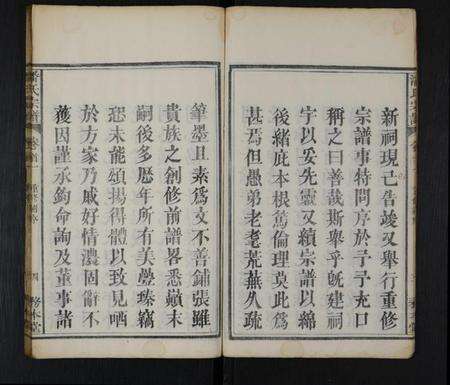 新祠現已告竣又舉行重修
宗譜事特問序於予予充口
稱之曰善哉斯舉乎旣建祠
宇以妥先靈又續宗譜以綿
後緒庇本根篤倫理莫此爲
甚焉但愚弟老耄荒蕪久疏
筆墨且素爲文不善鋪張雖
貴族之創修前譜畧悉巔末
嗣後多歷年所有美盡臻竊
恐未能頌揚得體以致見哂
於方家乃戚好情濃固辭不
獲因謹承鈞命詢及董事諸
潘氏宗譜
卷首
四
務本堂